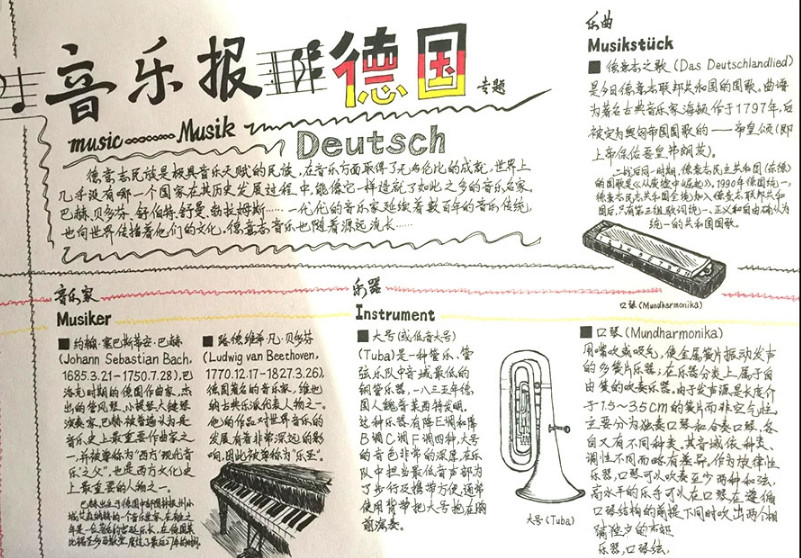 音乐报
德国
专题
music Musik
Deutsch
德意志民族是极具音乐天赋的民族,在音乐方面取得了无与伦比的成就,世界上
几乎没有哪一个国家在其历史发展过程中,能像它一样造就了如此之多的音乐名家,
巴赫、贝多芬、舒伯特、舒曼、勃拉姆斯……一代代的音乐家延续着数百年的音乐传统,
也向世界传播着他们的文化,德意志音乐也随着源远流长……
乐曲
Musikstück
德意志之歌 (Das Deutschlandlied)
是今日德意志联邦共和国的国歌。曲谱
为著名古典音乐家海顿作于1797年,后
被定为奥匈帝国国歌的——帝皇颂(即
上帝保佑吾皇弗朗茨)。
二战后同一时期,德意志民主共和国(东德)
的国歌是《从废墟中崛起》,1990年德国统一,
德意志民主共和国全境加入德意志联邦共和
国后,只有第三段歌词统一、正义和自由确认为
统一的共和国国歌。
口琴 (Mundharmonika)
音乐家
Musiker
约翰·塞巴斯蒂安·巴赫
(Johann Sebastian Bach,
1685.3.21-1750.7.28),巴
洛克时期的德国作曲家,杰
出的管风琴、小提琴、大键琴
演奏家,巴赫被普遍认为是
音乐史上最重要作曲家之
一,并被尊称为“西方‘现代音
乐’之父”,也是西方文化史
上最重要的人物之一。
巴赫出生于德国中部图林根州小
路德维希·凡·贝多芬
(Ludwig van Beethoven,
1770.12.17-1827.3.26),
德国著名的音乐家,维也
纳古典乐派代表人物之一。
他的作品对世界音乐的
发展有着非常深远的影
响,因此被尊称为“乐圣”。
乐器
Instrument
大号(或低音大号)
(Tuba)是一种铜管、管
弦乐队中音域最低的
铜管乐器,一八三五年德
国人魏普莱西特发明。
这种乐器有降E调和降
B调C调F调四种,大号
的音色非常的深厚,在乐
队中担当最低音声部,为
了步行及携带方便,通常
使用背带把大号抱在胸
前演奏。
大号(Tuba)
口琴 (Mundharmonika)
用嘴吹或吸气,使金属簧片振动发声
的多簧片乐器;在乐器分类上,属于自
由簧的吹奏乐器。由于发声源是长度介
于1.5~3.5cm的簧片而非空气柱,
主要分为独奏口琴和合奏口琴,各
自又有不同种类,其音域依种类、
调性不同而略有差异。作为旋律性
乐器,口琴可以吹奏至少两种和弦,
高水平的乐手可以在口琴在遵循
口琴结构的前提下同时吹出两个相
乐器,口琴弦,